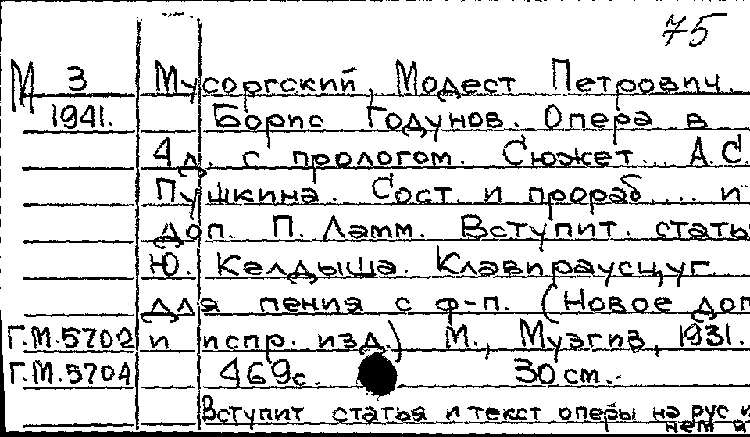 75
М 3 Мусоргский, Модест Петрович.
1941. Борис Годунов. Опера в
4 д. с прологом. Сюжет... А.С.
Пушкина. Сост. и прораб.... и
доп. П. Ламм. Вступит. стать
Ю. Келдыша. Клавираусцуг
для пения с ф-п. (Новое доп
Г.М.5702 и испр. изд.) М., Музгиз, 1931.
Г.М.5704 469с. 30 см.-
Вступит статья и текст оперы на рус и
нем я